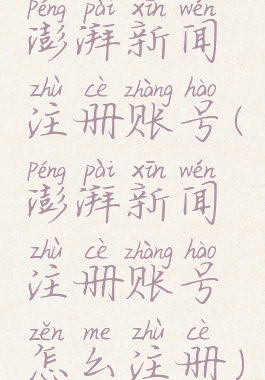 Péng pài xīn wén
澎湃新闻
zhù cè zhàng hào
注册账号(
Péng pài xīn wén
澎湃新闻
zhù cè zhàng hào
注册账号
zěn me zhù cè
怎么注册)